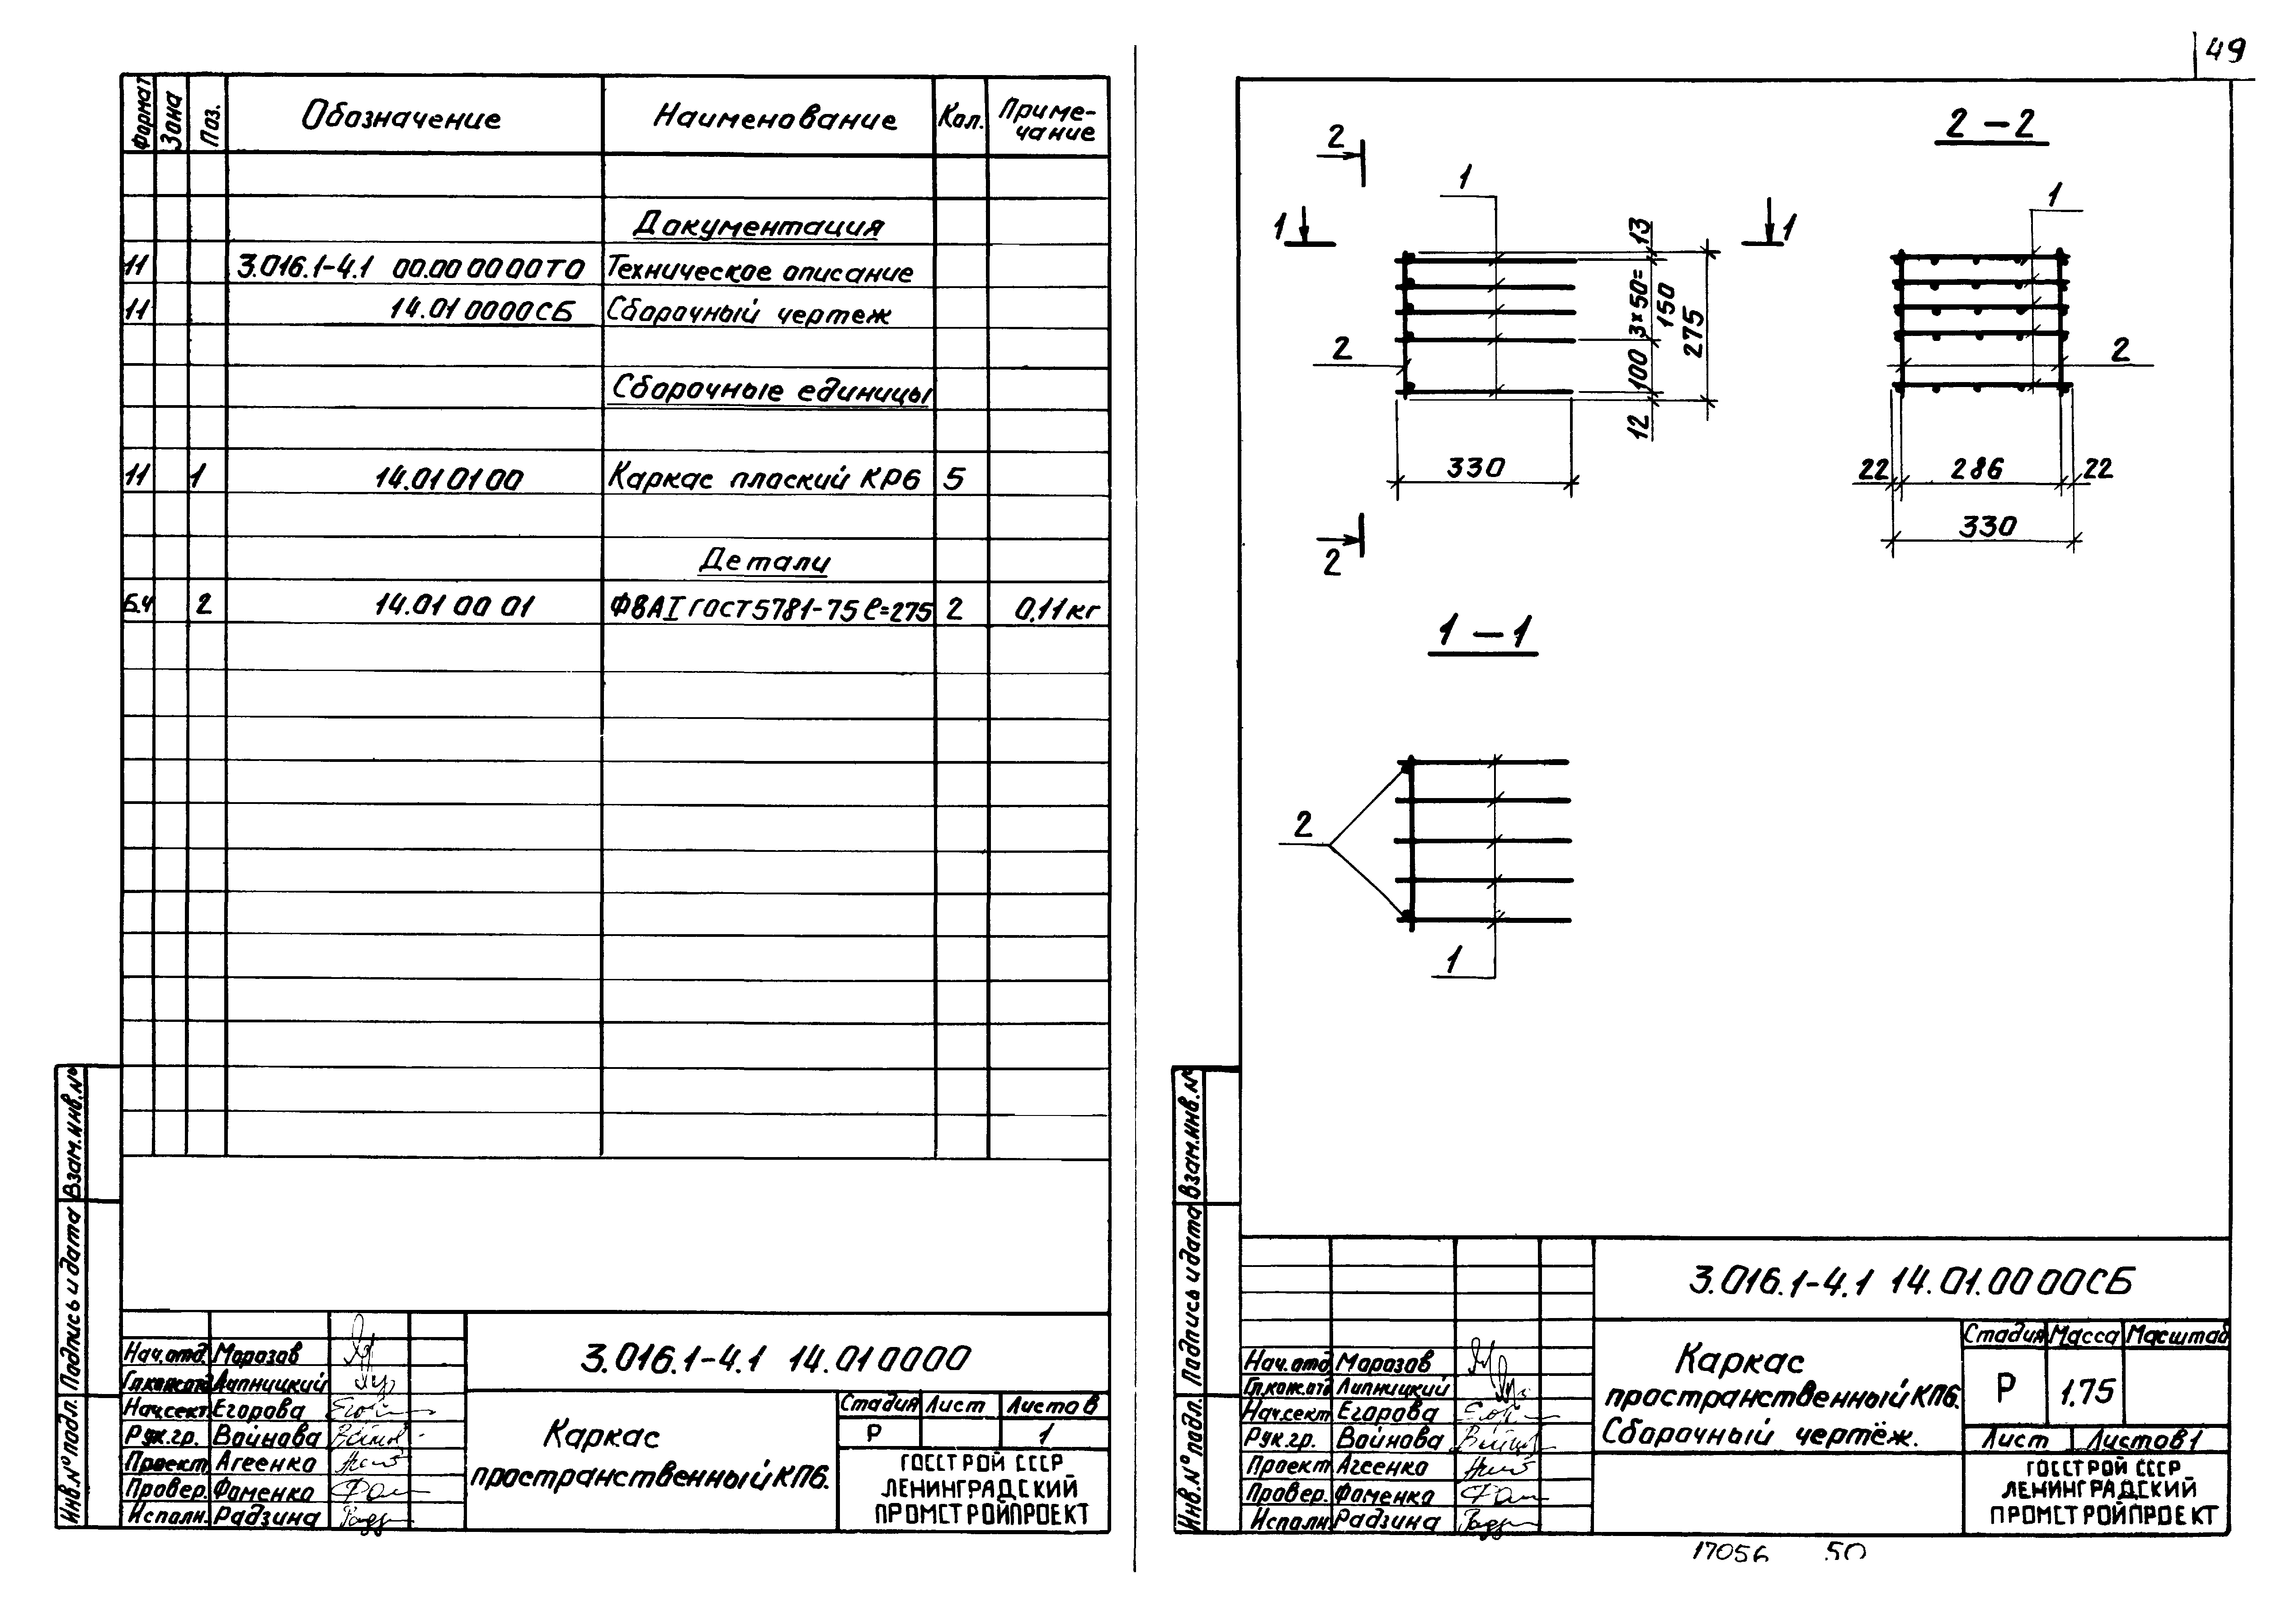 49
Формат
Зона
Поз.
Обозначение
Наименование
Кол.
Приме-
чание
Документация
11 3.016.1-4.1 00.00 00 00ТО Техническое описание
11 14.01 0000СБ Сборочный чертеж
Сборочные единицы
11 1 14.01 01 00 Каркас плоский КР6 5
Детали
Б.Ч 2 14.01 00 01 Ф8АI ГОСТ 5781-75 ℓ=275 2 0,11кг
Взам.инв.№
Подпись и дата
Инв.№ подл.
Нач.отд. Морозов
Гл.конс.отд Липницкий
Нач.сект. Егорова
Рук.гр. Войнова
Проект. Агеенко
Провер. Фоменко
Исполн. Радзина
3.016.1-4.1 14.01 0000
Каркас
пространственный КП6.
Стадия Лист Листов
Р 1
ГОССТРОЙ СССР
ЛЕНИНГРАДСКИЙ
ПРОМСТРОЙПРОЕКТ
2
1
1
1
2
13
3×50=
150
275
100
12
330
2
2-2
1
2
22 286 22
330
1-1
2
1
Взам.инв.№
Подпись и дата
Инв.№ подл.
3.016.1-4.1 14.01.00 00СБ
Нач.отд Морозов
Гл.кон.отд Липницкий
Нач.сект Егорова
Рук.гр. Войнова
Проект. Агеенко
Провер. Фоменко
Исполн. Радзина
Каркас
пространственный КП6.
Сборочный чертёж.
Стадия Масса Масштаб
Р 1.75
Лист Листов 1
ГОССТРОЙ СССР
ЛЕНИНГРАДСКИЙ
ПРОМСТРОЙПРОЕКТ
17056 50